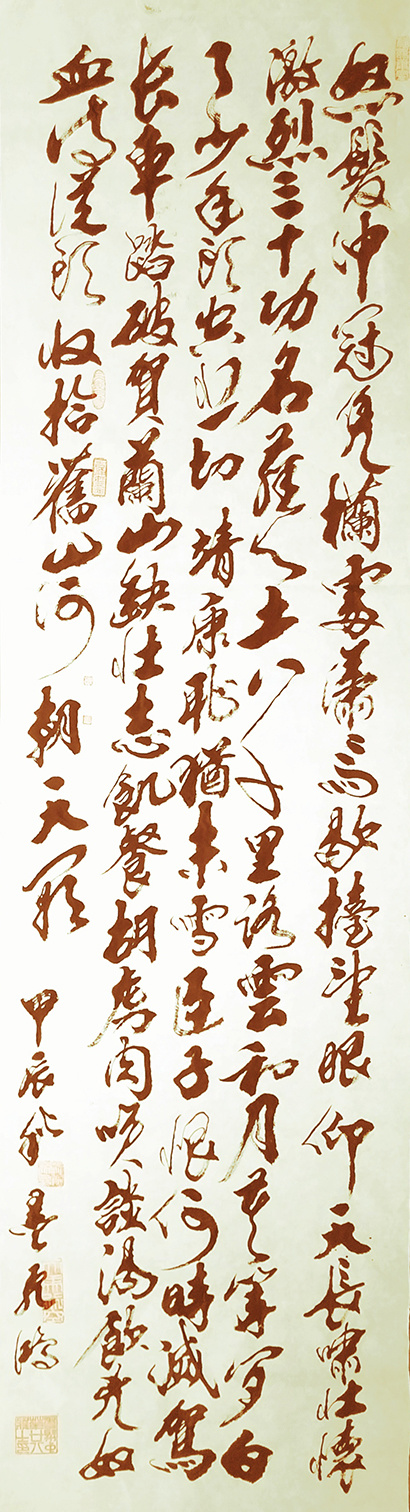 怒髮沖冠凭欄處瀟瀟雨歇擡望眼仰天長嘯壯懷
激烈三十功名塵與土八千里路雲和月莫等閒白
了少年頭空悲切靖康恥猶未雪臣子恨何時滅駕
長車踏破賀蘭山缺壯志飢餐胡虜肉笑談渴飲匈奴
血待從頭收拾舊山河朝天闕
甲辰秋